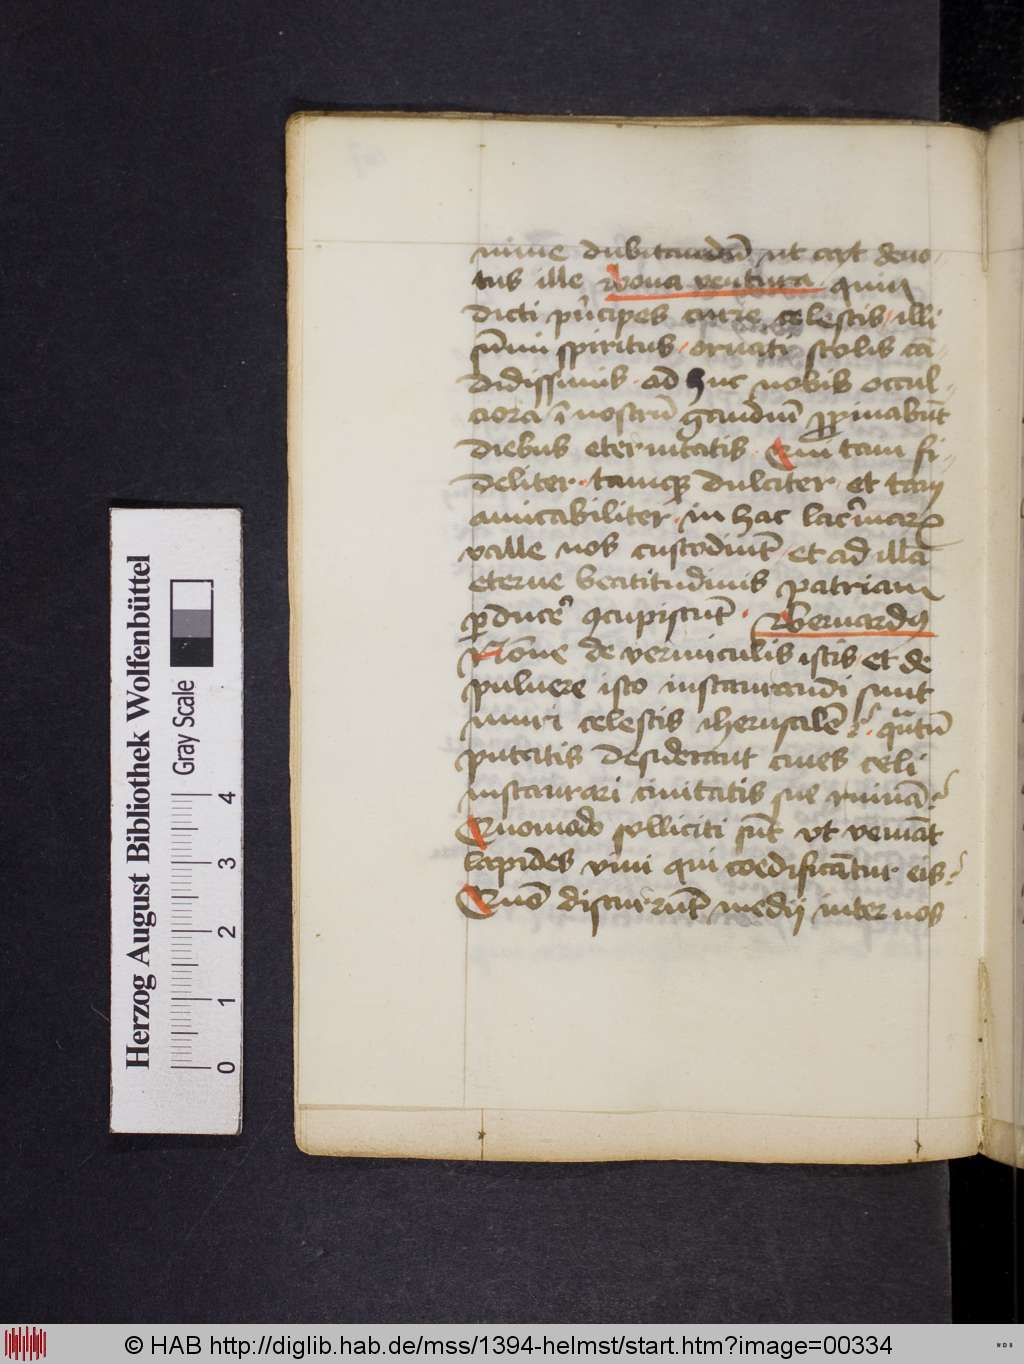 mime dubitandū ut ayt deuo-
tus ille Bona ventura quin
dicti prīcipes curie celestis illi
sūmi spiritus ornati stolis cā-
didissimis ad huc nobis occul-
ciora ī nostrū gaudiū ꝓpinabūt
diebus eternitatis Qui tam fi-
deliter tamqꝫ dulciter et tam
amicabiliter in hac lacrīmarꝝ
valle nos custodiūt et ad illā
eterne beatitudinis patriam
ꝑducēr ꝯcupiscūt Bernardꝰ
Nōne de vermiculis istis et de
puluere isto instaurandi sunt
muri celestis iherusalē? quātū
putatis desiderant ciues celi
instaurari ciuitatis sue ruinā?
Quomodo solliciti sūt vt veniāt
lapides viui qui coedificātur eis?
Quō discurrūt medij inter nos
Herzog August Bibliothek Wolfenbüttel
Gray Scale
0 1 2 3 4
© HAB http://diglib.hab.de/mss/1394-helmst/start.htm?image=00334